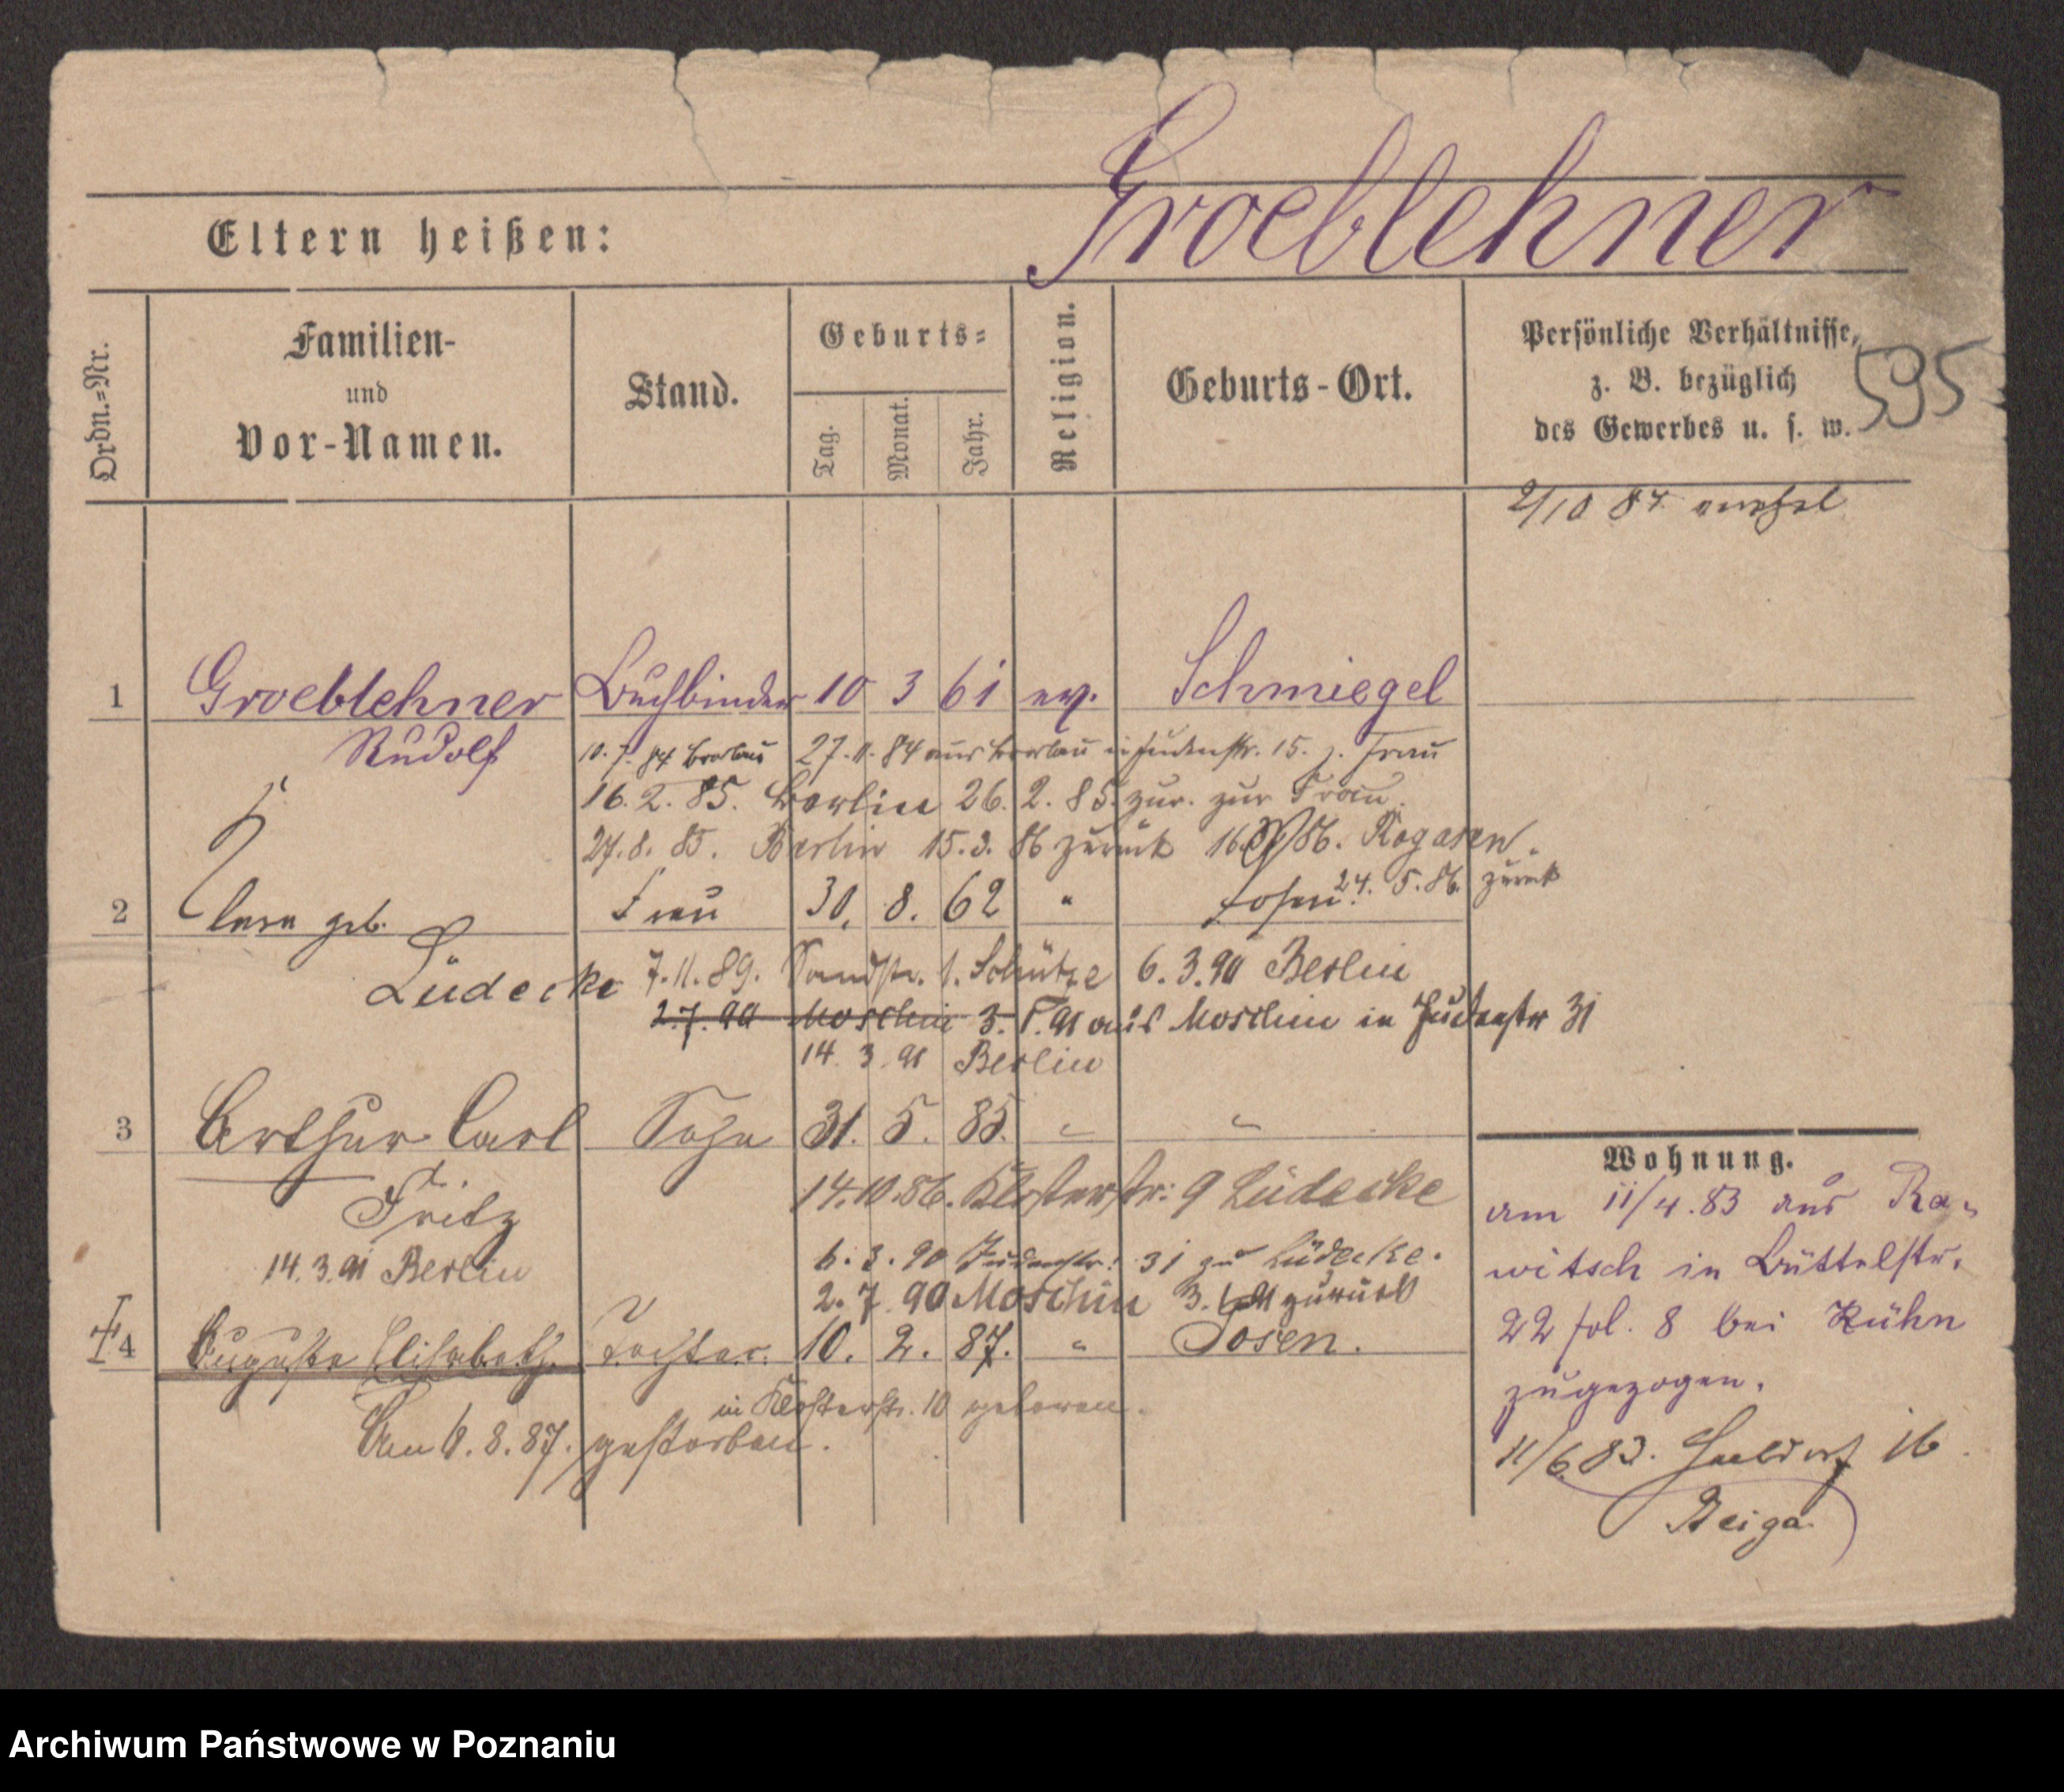 Groeblehner
Eltern heißen:
Ordn.=Nr.
Familien-
und
Vor-Namen.
Stand.
Geburts=
Tag.
Monat.
Jahr.
Religion.
Geburts-Ort.
Persönliche Verhältnisse,
z. B. bezüglich
des Gewerbes u. s. w.
595
2/10 87
1 Groeblehner Buchbinder 10 3 61 ev. Schmiegel
Rudolf
27.11.84 aus in Judenstr. 15. z. Frau
16.2.85. Berlin 26.2.85. zur. zur Frau.
27.8.85. Berlin 15.3.86 zurück 86. Rogasen.
24.5.86. zurück
2 Clara geb. Frau 30. 8. 62 " Posen.
Lüdecke
7.11.89. Sandstr. 1. Schütze 6.3.90 Berlin
2.7.90 Moschin 3. 91 aus Moschin in Judenstr 31
14.3.91 Berlin
3 Arthur Carl Sohn 31. 5. 85. " "
Fritz
14.10.86. Klosterstr. 9 Lüdecke
14.3.91 Berlin
6.3.90 Judenstr. 31 zu Lüdecke.
2.7.90 Moschin 3. 91 zurück
4 Auguste Elisabeth. Tochter. 10. 2. 87. " Posen.
in Klosterstr. 10 geboren.
Am 8.87. gestorben.
Wohnung.
am 11/4.83 aus Ra-
witsch in Büttelstr.
22 fol. 8 bei Kühn
zugezogen.
11/6 83. 16.
Archiwum Państwowe w Poznaniu